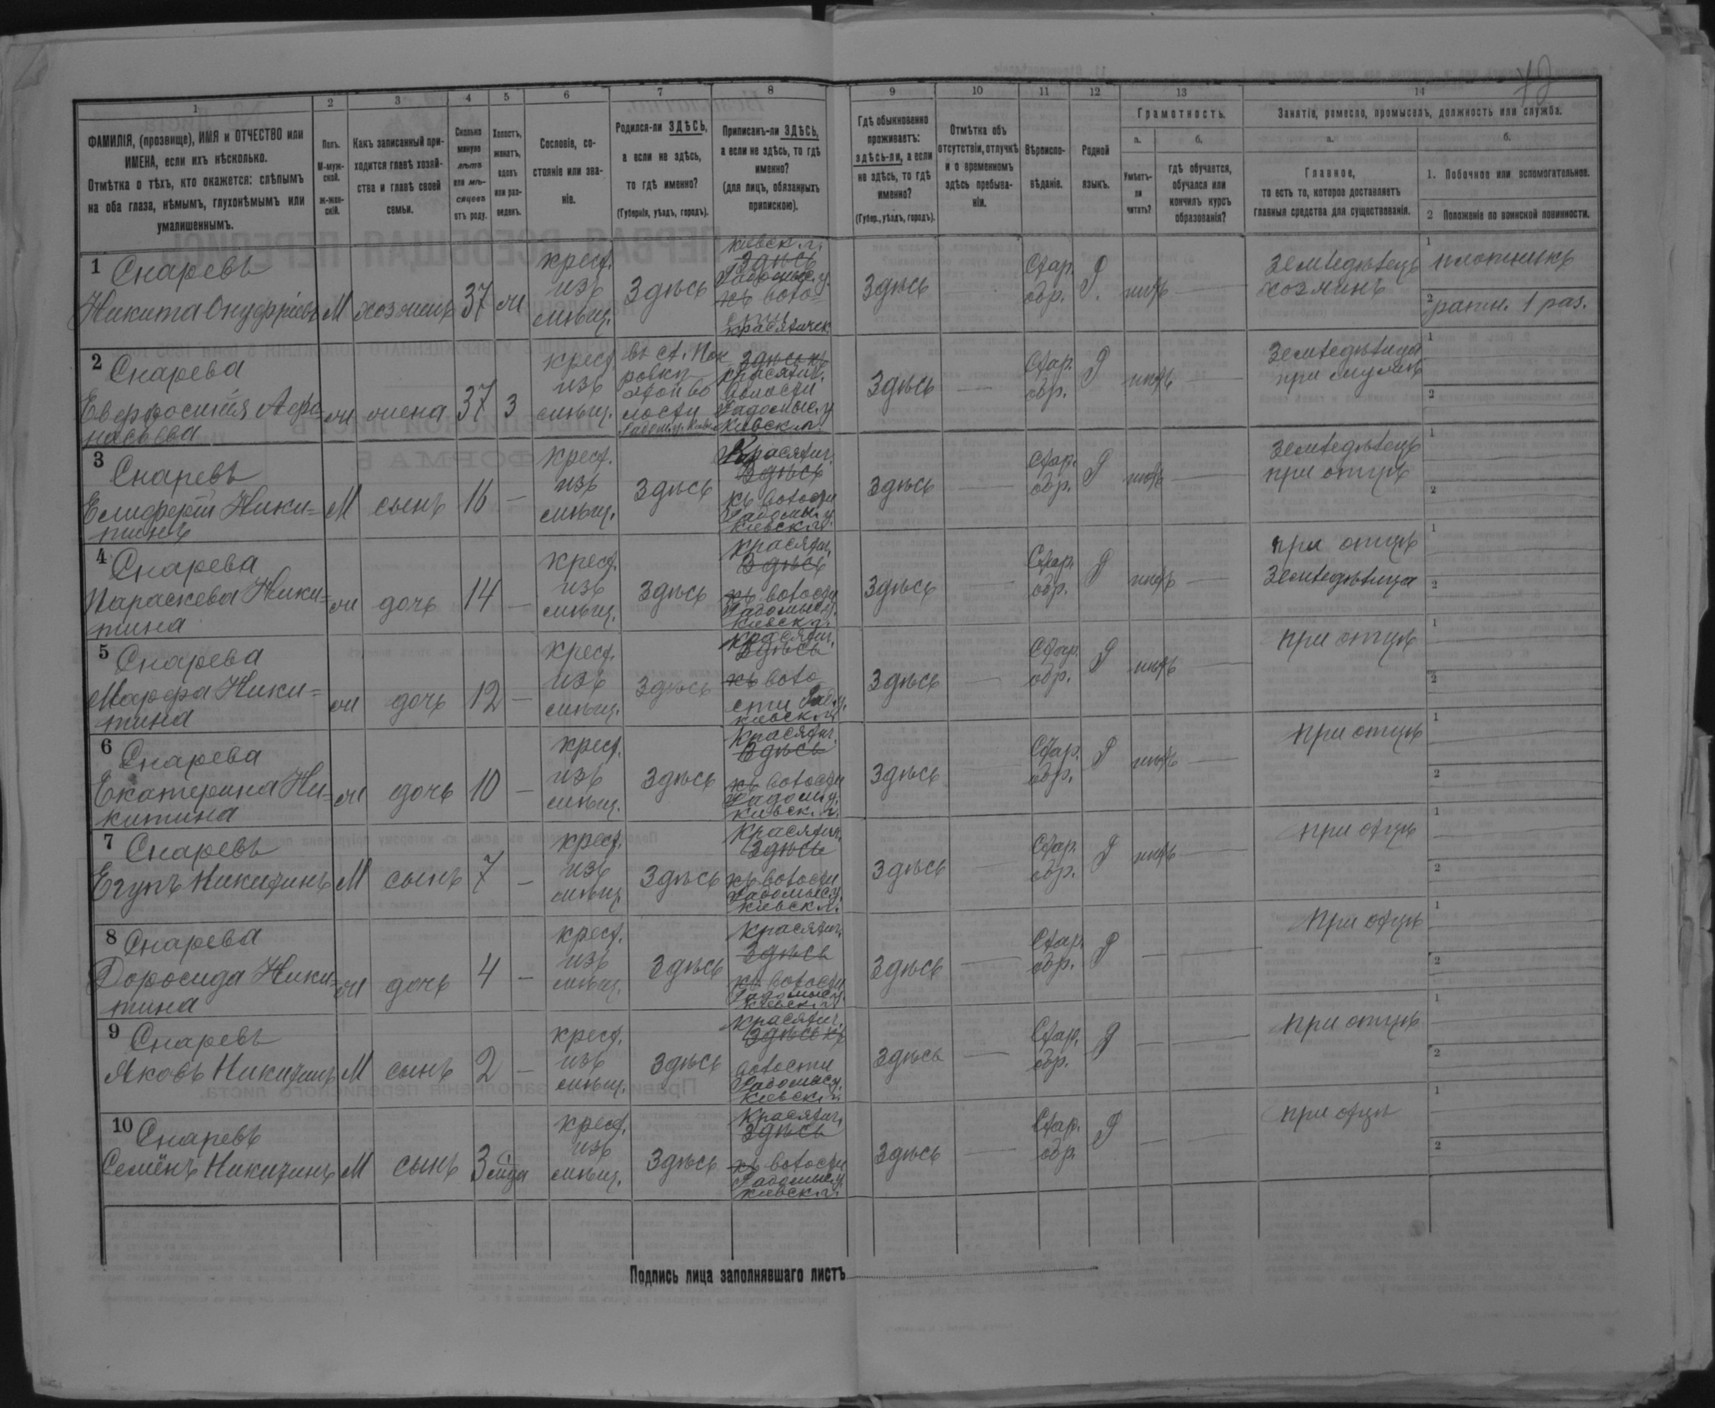 1
ФАМИЛІЯ, (прозвище), ИМЯ и ОТЧЕСТВО или
ИМЕНА, если ихъ нѣсколько.
Отмѣтка о тѣхъ, кто окажется: слѣпымъ
на оба глаза, нѣмымъ, глухонѣмымъ или
умалишеннымъ.
2
Полъ.
М-муж-
ской.
Ж-жен-
скій.
3
Какъ записанный при-
ходится главѣ хозяй-
ства и главѣ своей
семьи.
4
Сколько
минуло
лѣтъ
или мѣ-
сяцевъ
отъ роду.
5
Холостъ,
женатъ,
вдовъ
или раз-
веденъ.
6
Сословіе, со-
стояніе или зва-
ніе.
7
Родился-ли ЗДѢСЬ,
а если не здѣсь,
то гдѣ именно?
(Губернія, уѣздъ, городъ).
8
Приписанъ-ли ЗДѢСЬ,
а если не здѣсь, то гдѣ
именно?
(для лицъ, обязанныхъ
припискою).
9
Гдѣ обыкновенно
проживаетъ:
здѣсь-ли, а если
не здѣсь, то гдѣ
именно?
(Губер., уѣздъ, городъ).
10
Отмѣтка объ
отсутствіи, отлучкѣ
и о временномъ
здѣсь пребыва-
ніи.
11
Вѣроиспо-
вѣданіе.
12
Родной
языкъ.
13
Грамотность.
а.
Умѣетъ-
ли
читать?
б.
гдѣ обучается,
обучался или
кончилъ курсъ
образованія?
14
Занятіе, ремесло, промыселъ, должность или служба.
а.
Главное,
то есть то, которое доставляетъ
главныя средства для существованія.
б.
1. Побочное или вспомогательное.
2 Положеніе по воинской повинности.
1
Снаревъ
Никита Онуфріевъ М хозяинъ 37 ж
крест.
изъ
мѣщ.
Здѣсь
Кіевск. г.
Здѣсь
Радомысл. у.
къ воло-
сти
Красятич.
Здѣсь
Стар.
обр.
Р.
нѣтъ
Земледѣлецъ
хозяинъ
1 плотникъ
2 ратн. 1 раз.
2
Снарева
Евфросинія Афа-
насьева
ж жена 37 з
крест.
изъ
мѣщ.
Красятич.
волости
Радомысл. у.
Кіевск. г.
Здѣсь
Стар.
обр.
Р
нѣтъ
Земледѣлица
при мужѣ
1
2
3
Снаревъ
Елифері Ники-
тинъ
М сынъ 16
крест.
изъ
мѣщ.
Здѣсь
Красятич.
Здѣсь
къ волости
Радомысл. у.
Кіевск. г.
Здѣсь
Стар.
обр.
Р
нѣтъ
Земледѣлецъ
при отцѣ
1
2
4
Снарева
Параскева Ники-
тина
ж дочь 14
крест.
изъ
мѣщ.
Здѣсь
Красятич.
Здѣсь
къ волости
Радомысл. у.
Кіевск. г.
Здѣсь
Стар.
обр.
Р
нѣтъ
при отцѣ
Земледѣлица
1
2
5
Снарева
Марфа Ники-
тина
ж дочь 12
крест.
изъ
мѣщ.
Здѣсь
Красятич.
Здѣсь
къ воло-
сти Рад. у.
Кіевск. г.
Здѣсь
Стар.
обр.
Р
нѣтъ
при отцѣ
1
2
6
Снарева
Екатерина Ни-
китина
ж дочь 10
крест.
изъ
мѣщ.
Здѣсь
Красятич.
Здѣсь
къ волости
Радомысл. у.
Кіевск. г.
Здѣсь
Стар.
обр.
Р
нѣтъ
при отцѣ
1
2
7
Снаревъ
Егупъ Никитинъ М сынъ 7
крест.
изъ
мѣщ.
Здѣсь
Красятич.
Здѣсь
къ волости
Радомысл. у.
Кіевск. г.
Здѣсь
Стар.
обр.
Р
нѣтъ
при отцѣ
1
2
8
Снарева
Доросида Ники-
тина
ж дочь 4
крест.
изъ
мѣщ.
Здѣсь
Красятич.
Здѣсь
къ волости
Радомысл. у.
Кіевск. г.
Здѣсь
Стар.
обр.
Р
при отцѣ
1
2
9
Снаревъ
Яковъ Никитинъ М сынъ 2
крест.
изъ
мѣщ.
Здѣсь
Красятич.
Здѣсь къ
волости
Радомысл. у.
Кіевск. г.
Здѣсь
Стар.
обр.
Р
при отцѣ
1
2
10
Снаревъ
Семёнъ Никитинъ М сынъ
крест.
изъ
мѣщ.
Здѣсь
Красятич.
Здѣсь
къ волости
Радомысл. у.
Кіевск. г.
Здѣсь
Стар.
обр.
Р
при отцѣ
1
2
Подпись лица заполнявшаго листъ